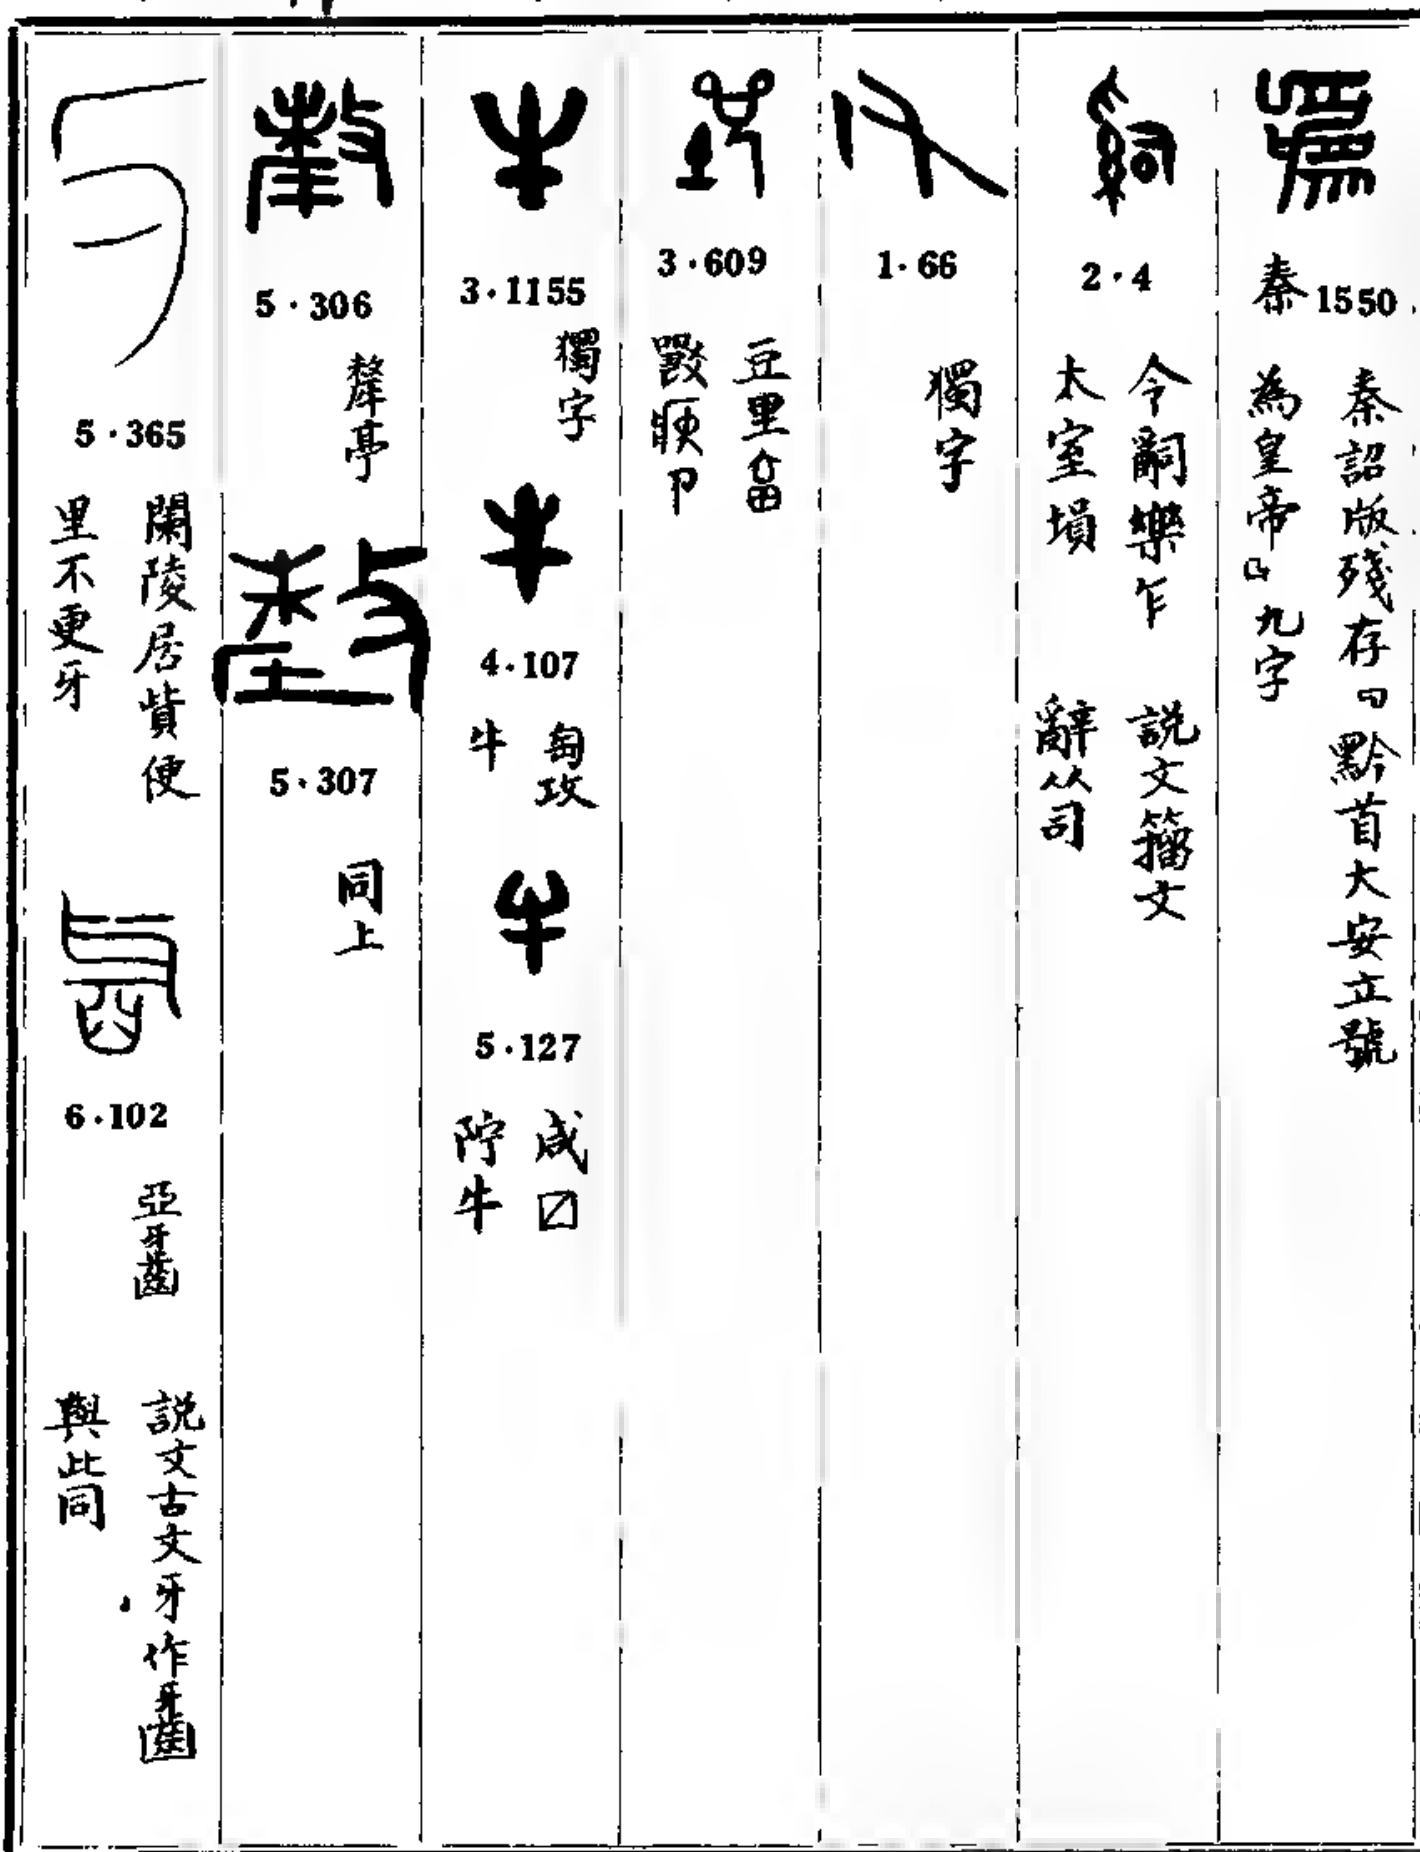 秦1550
秦詔版殘存『黔首大安立號
為皇帝』九字
2·4
令嗣樂乍
太室塤
說文籀文
辭从司
1·66
獨字
3·609
豆里
3·1155
獨字
4·107
匋攻
牛
5·127
咸☐
陓牛
5·306
犛亭
5·307
同上
5·365
闌陵居貲便
里不更牙
6·102
亞
說文古文牙作
與此同